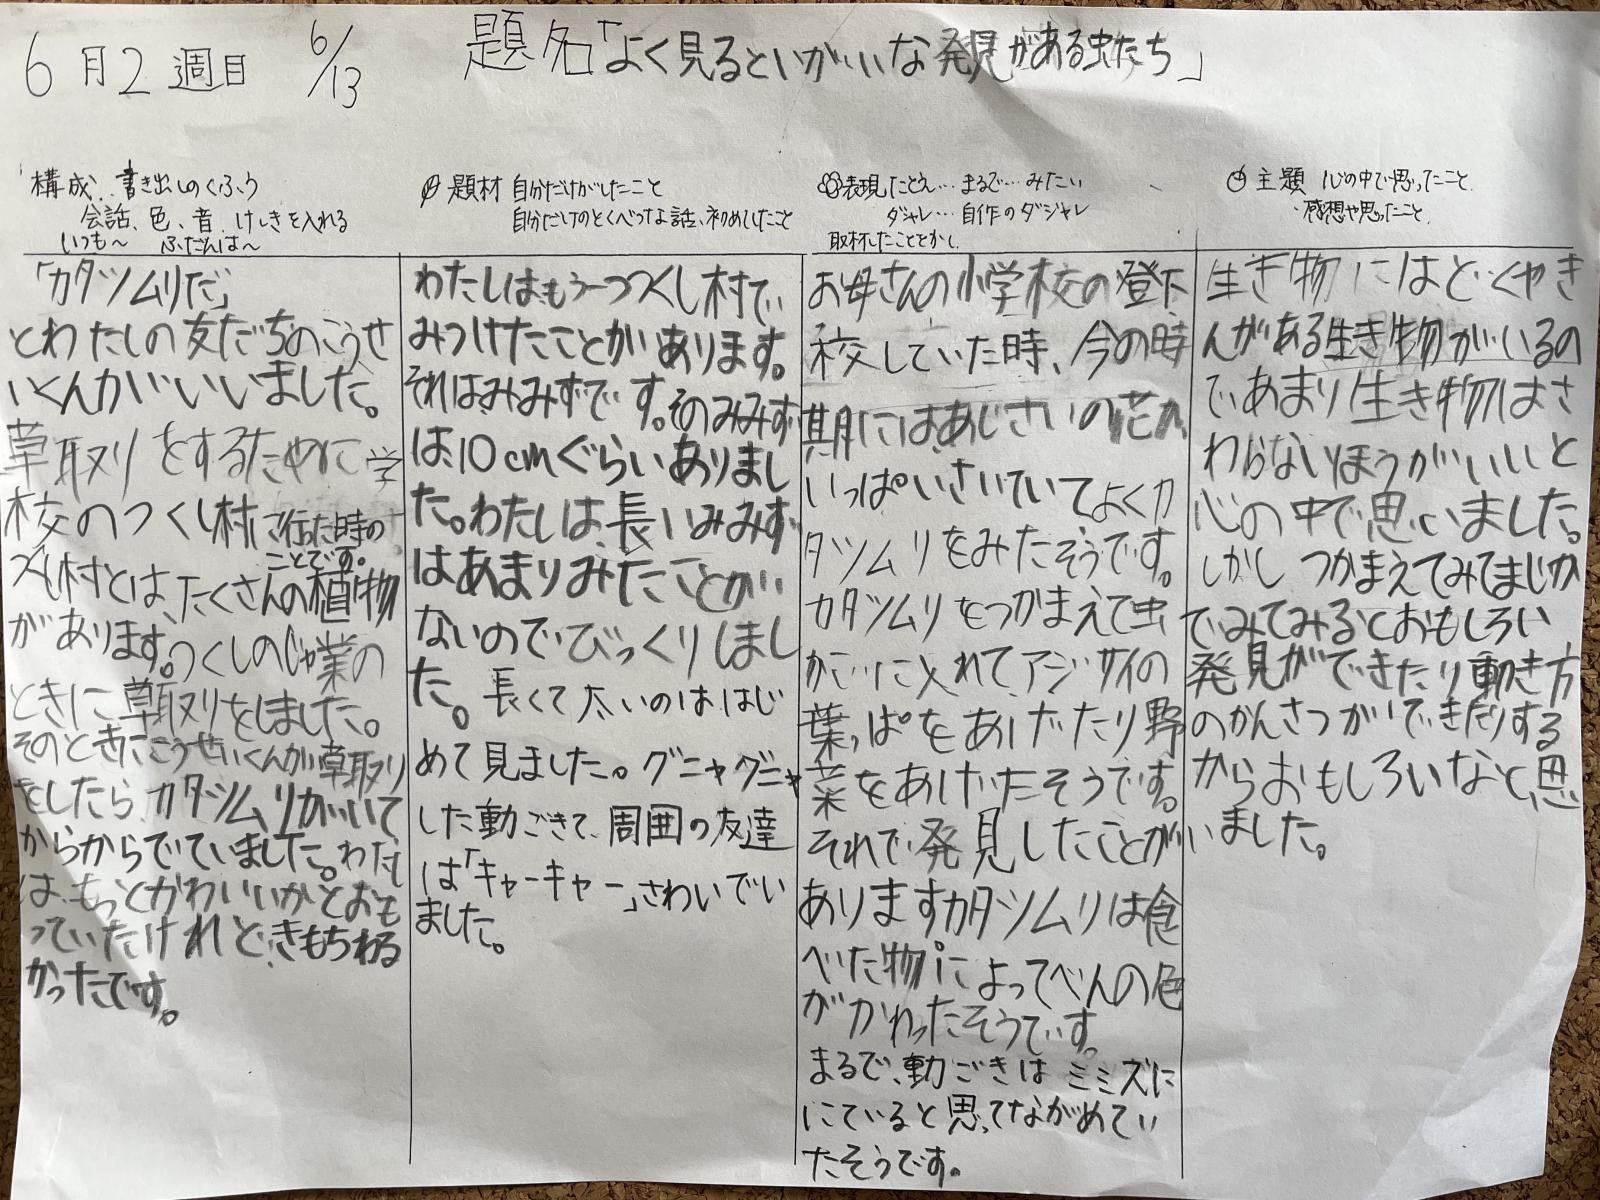 6月2週目 6/13 題名「よく見るといがいな発見がある虫たち」
構成 書き出しのくふう
会話、色、音、けしきを入れる
いつも〜 ふだんは〜
「カタツムリだ」
とわたしの友だちのこうせ
いくんがいいました。
草取りをするために学
校のつくし村に行った時の
ことです。
つくし村とは、たくさんの植物
があります。つくしのじゅ業の
ときに草取りをしました。
そのときにこうせいくんが草取り
をしたら、カタツムリがいて
からからでていました。わたし
は、もっとかわいいかとおも
っていたけれど、きもちわる
かったです。
題材 自分だけがしたこと
自分だけのとくべつな話、初めてしたこと
わたしは、もう一つつくし村で
みつけたことがあります。
それはみみずです。そのみみず
は、10cmぐらいありまし
た。わたしは、長いみみず
はあまりみたことが
ないのでびっくりしまし
た。長くて太いのは、はじ
めて見ました。グニャグニャ
した動ごきで、周囲の友達
は「キャーキャー」さわいでい
ました。
表現 たとえ…まるで…みたい
ダジャレ…自作のダジャレ
取材したことをかく
お母さんの小学校の登下
校していた時、今の時
期にはあじさいの花が
いっぱいさいていてよくカ
タツムリをみたそうです。
カタツムリをつかまえて虫
かごに入れて、アジサイの
葉っぱをあげたり野
菜をあげたそうです。
それで発見したことが
ありますカタツムリは食
べた物によってべんの色
がかわったそうです。
まるで、動ごきはミミズに
にていると思ってながめてい
たそうです。
主題 心の中で思ったこと
感想や思ったこと
生き物にはどくやき
んがある生き物がいるの
であまり生き物はさ
わらないほうがいいと
心の中で思いました。
しかし つかまえてみてまじか
でみてみるとおもしろい
発見ができたり動き方
のかんさつができたりする
からおもしろいなと思
いました。